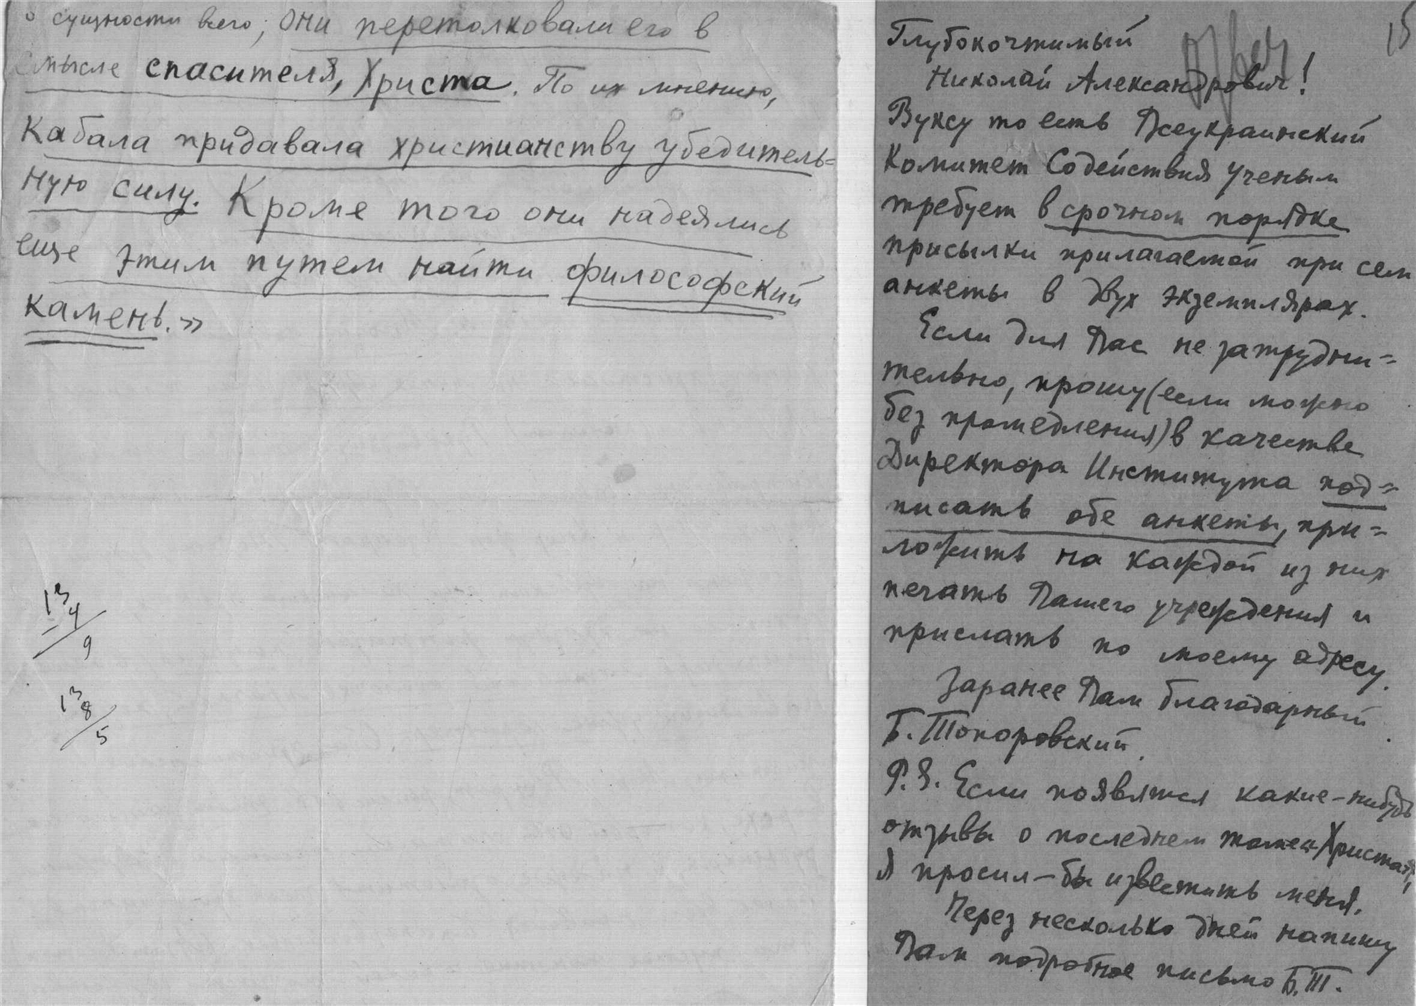 о сущности всего; они перетолковали его в
смысле спасителя, Христа. По их мнению,
Кабала придавала христианству убедитель=
ную силу. Кроме того они надеялись
еще этим путем найти философский
камень.»
13 4/9
13 8/5
15
Глубокочтимый
Николай Александрович!
Вуксу то есть Всеукраинский
Комитет Содействия ученым
требует в срочном порядке
присылки прилагаемой при сем
анкеты в двух экземплярах.
Если для Вас не затрудни=
тельно, прошу (если можно
без промедления) в качестве
Директора Института под=
писать обе анкеты, при=
ложить на каждой из них
печать Вашего учреждения и
прислать по моему адресу.
Заранее Вам благодарный
Б. Топоровский.
P.S. Если появятся какие-нибудь
отзывы о последнем томе «Христа»,
я просил-бы известить меня.
Через несколько дней напишу
Вам подробное письмо Б.Т.